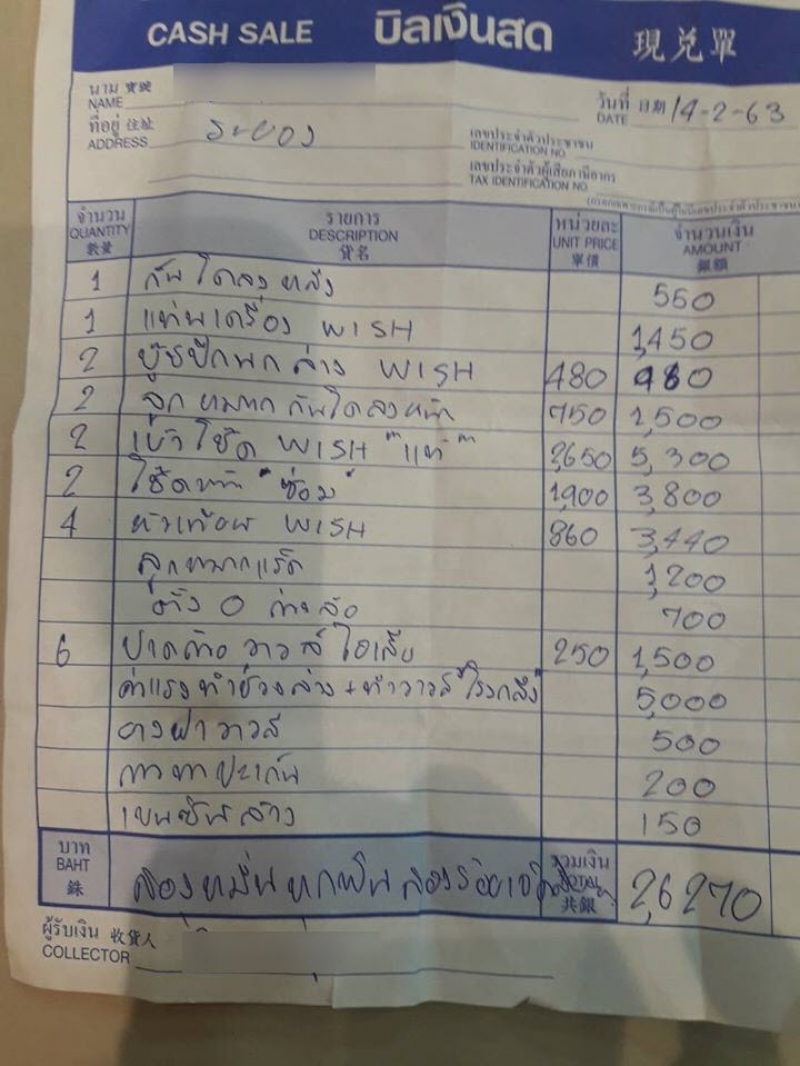 CASH SALE บิลเงินสด 現兌單
นาม 寶號
NAME
วันที่ 日期 14-2-63
DATE
ที่อยู่ 住址 ระยอง
ADDRESS
เลขประจำตัวประชาชน
IDENTIFICATION NO
เลขประจำตัวผู้เสียภาษีอากร
TAX IDENTIFICATION NO.
จำนวน รายการ หน่วยละ จำนวนเงิน
QUANTITY DESCRIPTION UNIT PRICE AMOUNT
數量 貨名 單價 銀額
1 กันโคลงหลัง 550
1 แท่นเครื่อง WISH 1,450
2 บู๊ชปีกนกล่าง WISH 480 980
2 ลูกหมากกันโคลงหน้า 750 1,500
2 เบ้าโช๊ค WISH "แท้" 2,650 5,300
2 โช๊คหน้า "ซ่อม" 1,900 3,800
4 หัวเทียน WISH 860 3,440
ลูกหมากแร็ค 1,200
ตั้ง 0 ถ่วงล้อ 700
6 ปาดถ้วยวาวล์ไอเสีย 250 1,500
ค่าแรงทำช่วงล่าง + ทำวาวล์ "โรงกลึง" 5,000
ยางฝาวาวล์ 500
กาวทาปะเก็น 200
เบนซินล้าง 150
บาท รวมเงิน
BAHT สองหมื่นหกพันสองร้อยเจ็ดสิบ TOTAL 26,270
銖 共銀
ผู้รับเงิน 收貨人
COLLECTOR